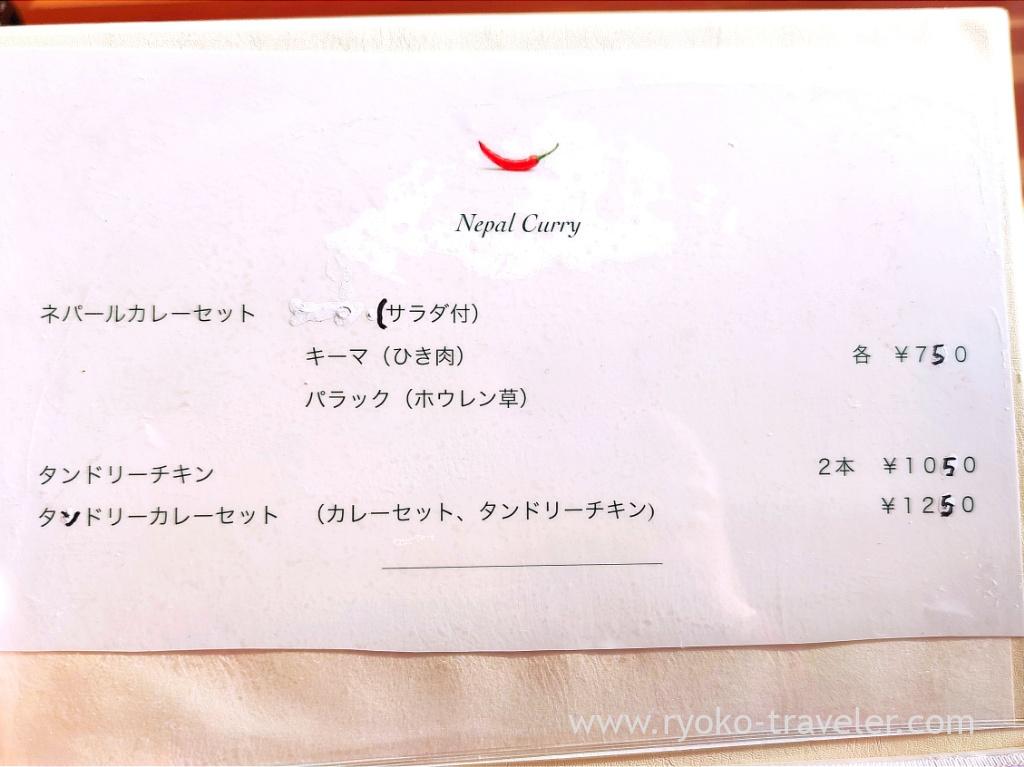 Nepal Curry
ネパールカレーセット (サラダ付)
キーマ（ひき肉） 各 ￥750
パラック（ホウレン草）
タンドリーチキン 2本 ￥1050
タンドリーカレーセット （カレーセット、タンドリーチキン) ￥1250
www.ryoko-traveler.com